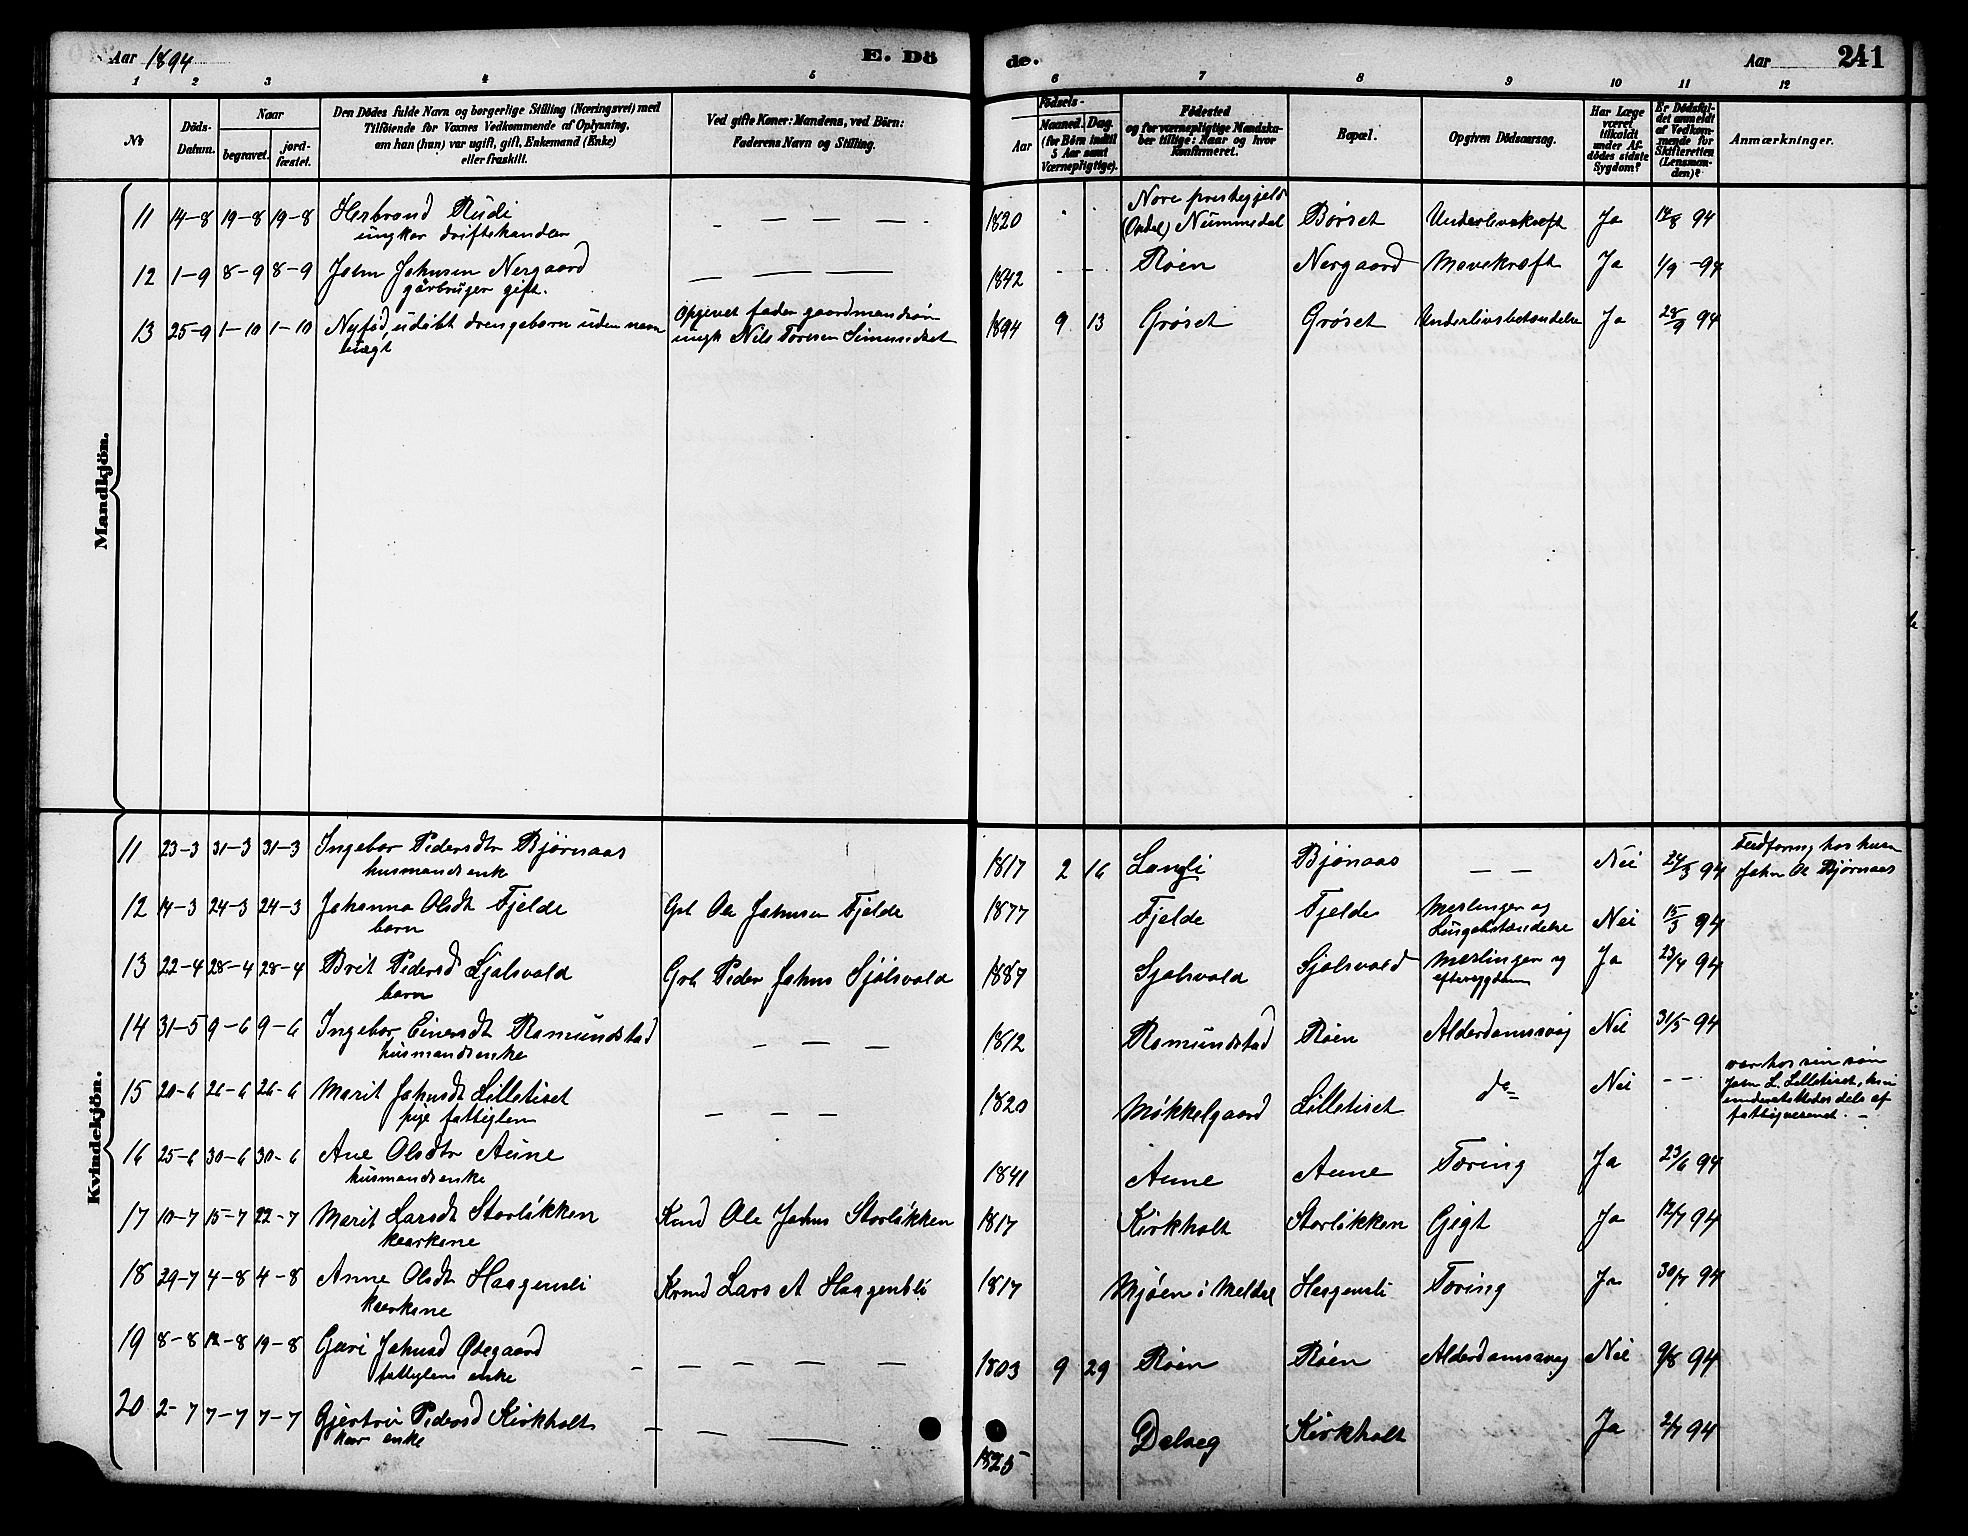 Aar 1894
E. Dö
de.
Aar
241
1 2 3 4 5 6 7 8 9 10 11 12
No
Döds-Datum.
Naar
begravet.
jord-fæstet.
Den Dödes fulde Navn og borgerlige Stilling (Næringsvei) med
Tilföiende for Voxnes Vedkommende af Oplysning,
om han (hun) var ugift, gift, Enkemand (Enke)
eller fraskilt.
Ved gifte Koner: Mandens, ved Börn:
Faderens Navn og Stilling.
Födsels-
Aar
Maaned. Dag.
(for Børn indtil
5 Aar samt
Værnepligtige).
Födested
og for værnepligtige Mandska-
ber tillige: Naar og hvor
Konfirmeret.
Bopæl.
Opgiven Dödsaarsag.
Har Læge
været
tilkaldt
under Af-
dödes sidste
Sygdom?
Er Dödsfal-
det anmeldt
af Vedkom-
mende for
Skifteretten
(Lensman-
den)?
Anmærkninger.
Mandkjön.
11 14-8 19-8 19-8 Herbrand Rudi
ungkar driftshandler
— — — 1820 Nore prestegjeld
(Opdal) Nummedal Børset Underlivskræft Ja 14/8 94
12 1-9 8-9 8-9 John Johnsen Nergaard
gårbruger gift.
— — — 1842 - - Røen Nergaard Mavekræft Ja 1/9 -94
13 25-9 1-10 1-10 Nyfød, udøbt drengebarn uden navn
uægt
Opgivet fader gaardmandssøn
ungk Nils Toresen
1894 9 13 Grøset Grøset Underlivsbetændelse Ja 28/9 94
Kvindekjön.
11 23-3 31-3 31-3 Ingebor Pedersdtr Bjørnaas
husmandsenk
1817 2 16 Langli Bjønaas — — Nei 24/3 94 Fødforing hos husm
John Ol Bjørnaas
12 14-3 24-3 24-3 Johanna Olsdt Fjelde
barn
Grb Ole Johnsen Fjelde 1877 Fjelde Fjelde Meslinger og
Lungebetændelse Nei 15/3 94
13 22-4 28-4 28-4 Brit Pedersd Sjølsvold
barn
Grb Peder Johns Sjølsvold 1887 Sjølsvold Sjølsvold Meslinger og
eftersygdom Ja 23/4 94
14 31-5 9-6 9-6 Ingebor Einersdt Romundstad
husmandsenke
— — — 1812 Romundstad Røen Alderdomssvag Nei 31/5 94
15 20-6 26-6 26-6 Marit Johnsdt Lilletiset
pige fattiglem
— — — 1820 Møkkelgaard Lilletiset do Nei - - var hos sin søn
John L. Lilletiset, hun
understøttedes dels af
fattigvæsenet. -
16 25-6 30-6 30-6 Ane Olsdtr Aune
husmandsenke
1841 Aune Aune Tæring Ja 23/6 94
17 10-7 15-7 22-7 Marit Larsdt Storløkken
kaarkone
Kmd Ole Johns Storløkken 1817 Kirkholt Storløkken Gigt Ja 12/7 94
18 29-7 4-8 4-8 Anne Olsdt Haagensli
kaarkone
Kmd Lars A Haagensli 1817 Mjøen i Meldal Haagensli Tæring Ja 30/7 94
19 8-8 12-8 19-8 Guri Johnsd Ødegaard
fattiglem enke
— — — — 1803 9 29 Røen Røen Alderdomssvag Nei 9/8 94
20 2-7 7-7 7-7 Gjertru Pedersd Kirkholt
kaar enke
— — — 1825 Dalseg Kirkholt Ja 2/7 94